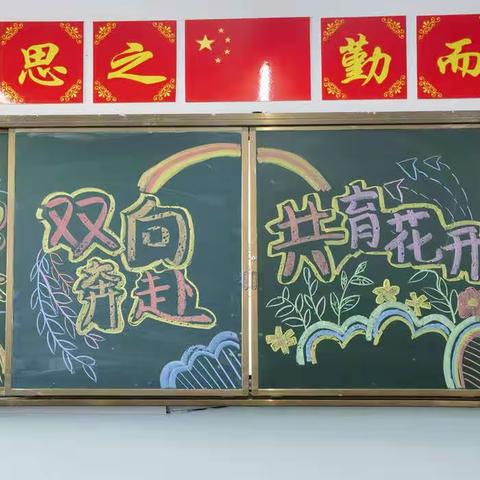 思之 勤而
双向
奔赴
共育花开